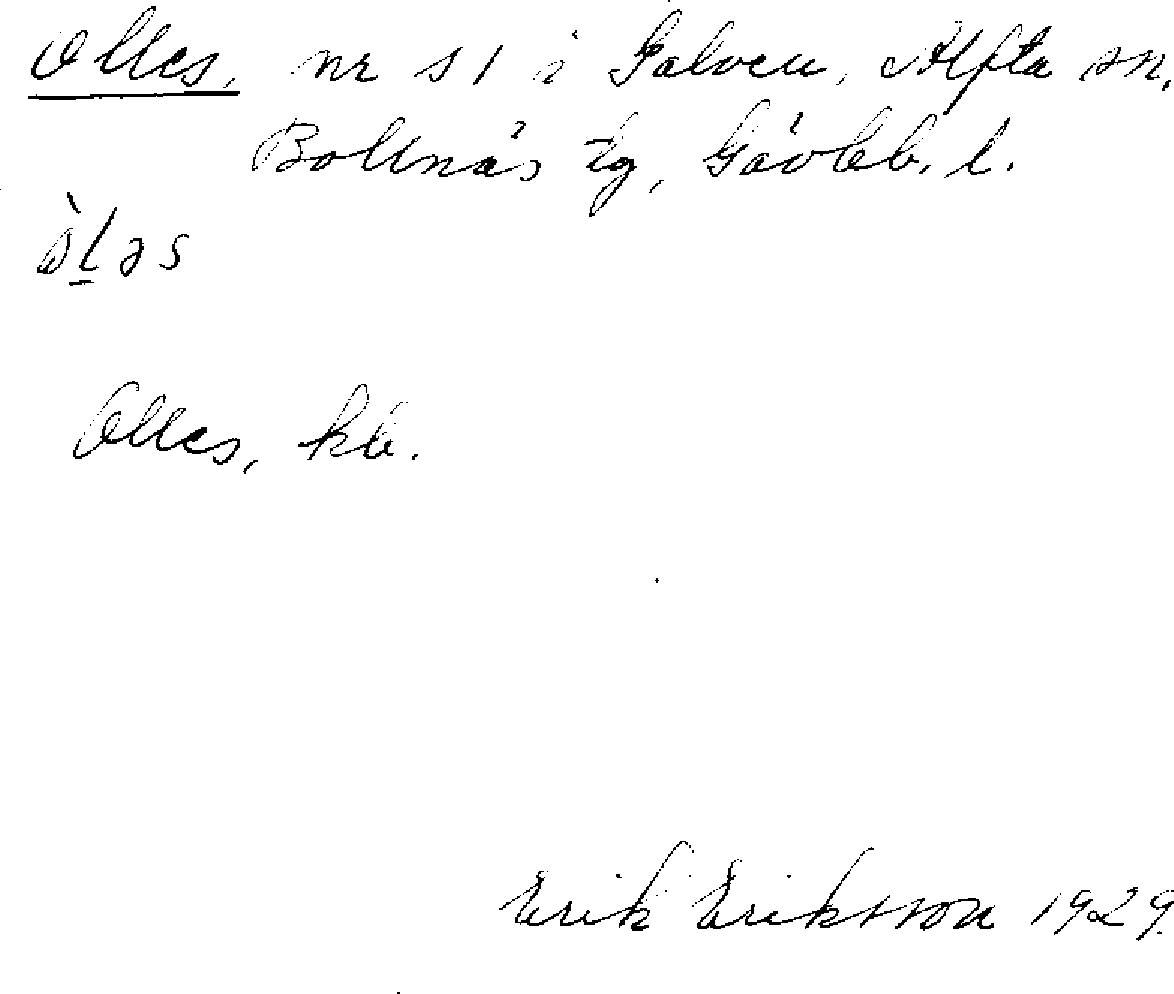 Olles, nr 51 i Galven, Alfta sn,
Bollnäs tg, Gävleb. l.
Olles, kb.
Erik Eriksson 1929.